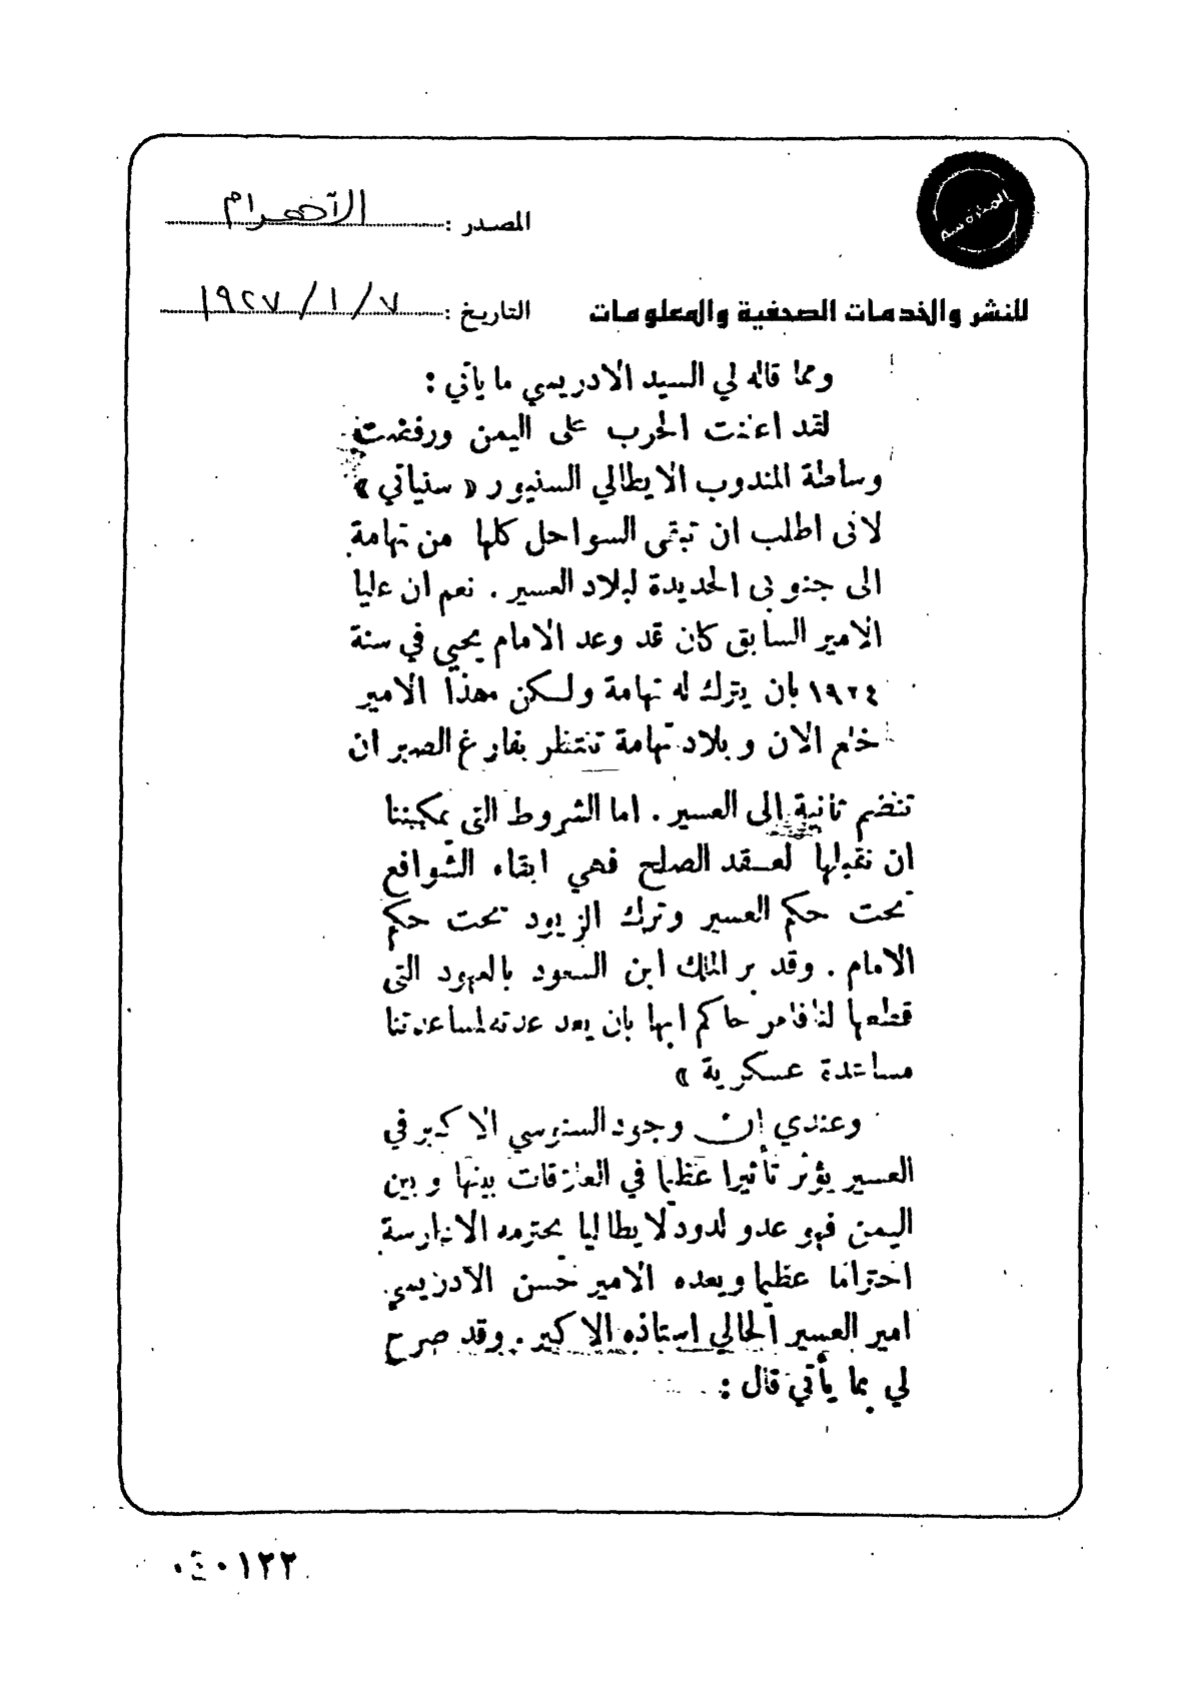 المصدر : الأهرام
للنشر والخدمات الصحفية والمعلومات
التاريخ : ٧ / ١ / ١٩٢٧
ومما قاله لي السيد الادريسي ما يأتي :
لقد اعلنت الحرب على اليمن ورفضت
وساطة المندوب الايطالي السنيور « سنياتي »
لانى اطلب ان تبقى السواحل كلها من تهامة
الى جنوبى الحديدة لبلاد العسير . نعم ان عليا
الامير السابق كان قد وعد الامام يحيى في سنة
١٩٢٤ بان يترك له تهامة ولكن هذا الامير
خلع الان وبلاد تهامة تنتظر بفارغ الصبر ان
تنضم ثانية الى العسير . اما الشروط التى يمكننا
ان نقبلها لعقد الصلح فهي ابقاء الشوافع
تحت حكم العسير وترك الزيود تحت حكم
الامام . وقد بر الملك ابن السعود بالعهود التى
قطعها لنا فامر حاكم ابها بان يعد عدته لمساعدتنا
مساعدة عسكرية »
وعندي ان وجود السنوسي الاكبر في
العسير يؤثر تأثيرا عظيما في العلاقات بينها وبين
اليمن فهو عدو لدود لايطاليا يحترمه الادارسة
احتراما عظيما ويعده الامير حسن الادريسي
امير العسير الحالي استاذه الاكبر . وقد صرح
لي بما يأتي قال :
٠٤٠١٢٢